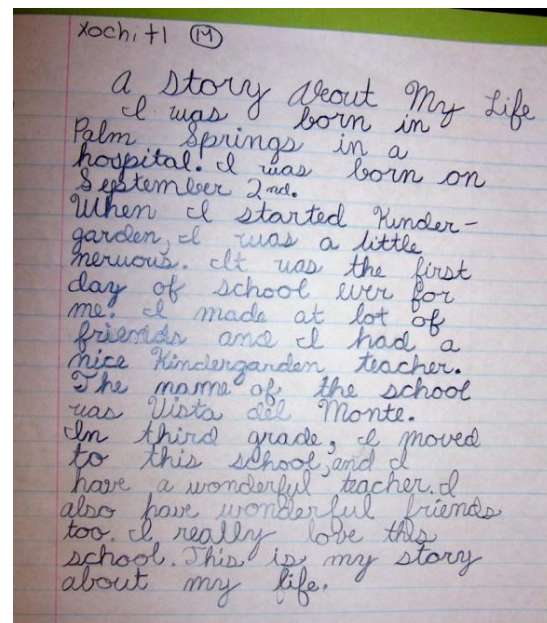 Xochitl M
A Story About My Life
I was born in
Palm Springs in a
hospital. I was born on
September 2nd.
When I started Kinder-
garden, I was a little
nervous. It was the first
day of school ever for
me. I made at lot of
friends and I had a
nice Kindergarden teacher.
The name of the school
was Vista del Monte.
In third grade, I moved
to this school, and I
have a wonderful teacher. I
also have wonderful friends
too. I really love this
school. This is my story
about my life.